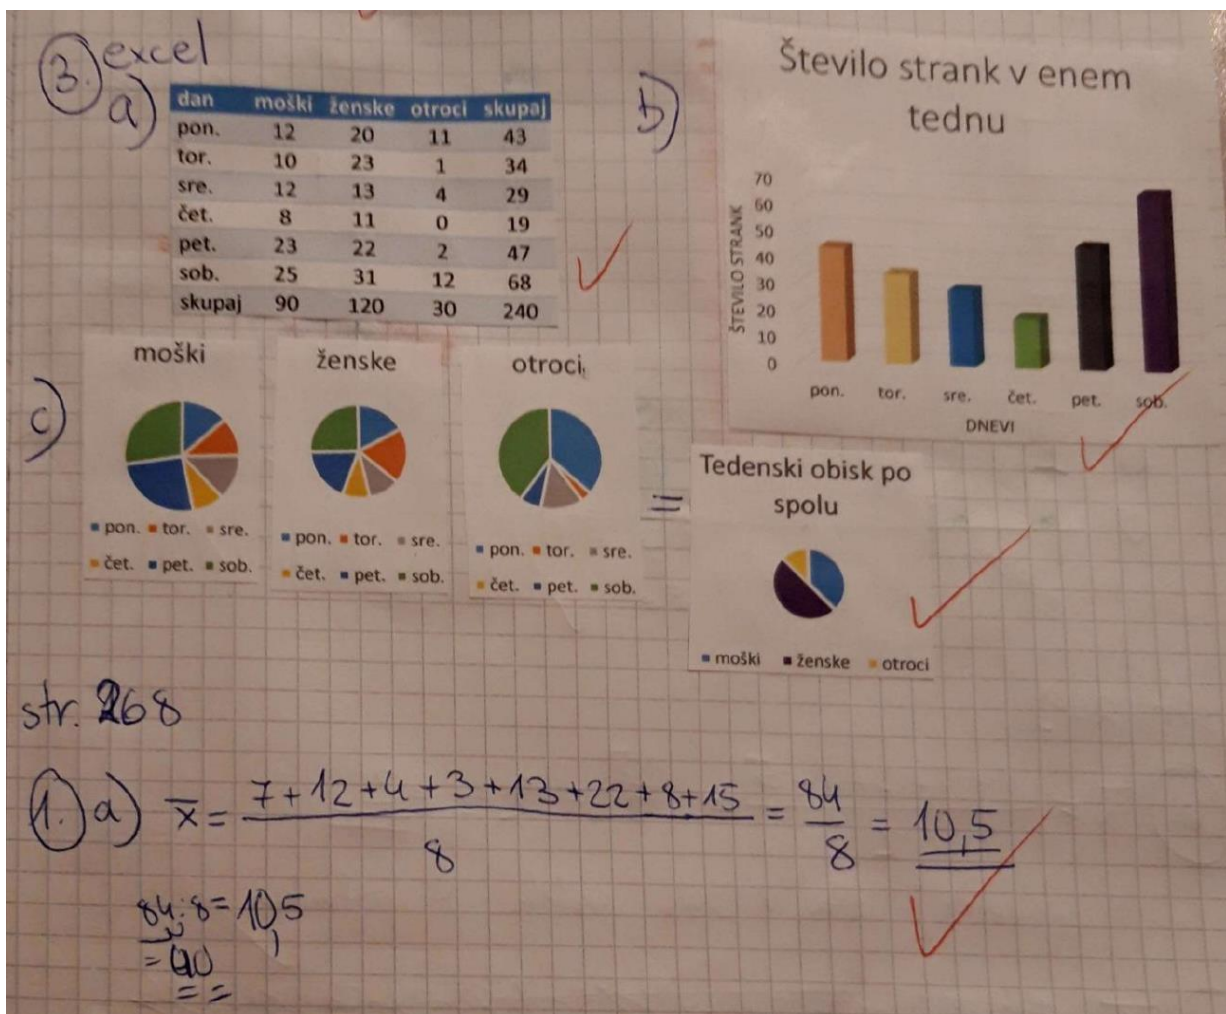 3. excel
a)
dan moški ženske otroci skupaj
pon. 12 20 11 43
tor. 10 23 1 34
sre. 12 13 4 29
čet. 8 11 0 19
pet. 23 22 2 47
sob. 25 31 12 68
skupaj 90 120 30 240
b)
Število strank v enem
tednu
ŠTEVILO STRANK
70
60
50
40
30
20
10
0
pon. tor. sre. čet. pet. sob.
DNEVI
c)
moški
pon. tor. sre.
čet. pet. sob.
ženske
pon. tor. sre.
čet. pet. sob.
otroci
pon. tor. sre.
čet. pet. sob.
=
Tedenski obisk po
spolu
moški ženske otroci
str. 268
1. a) x̄ = 7+12+4+3+13+22+8+15 / 8 = 84 / 8 = 10,5
84:8=10,5
=40
==